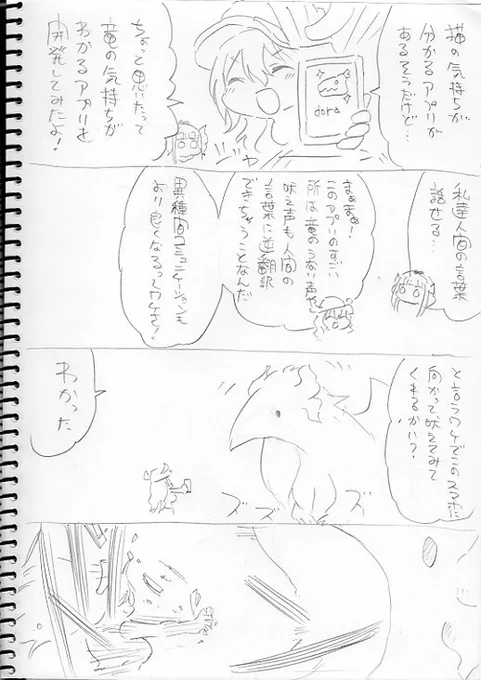 猫の気持ちが
分かるアプリが
あるそうだけど…
dora
ちょっと思いたって
竜の気持ちが
わかるアプリを
開発してみたよ！
私達人間の言葉
話せる…
まぁまぁ！
このアプリのすごい
所は竜のうなり声や
吠え声も人間の
言葉に逆翻訳
できちゃうことなんだ
異種間コミュニケーションも
より良くなるってワケさ！
と言うワケでこのスマホに
向かって吠えてみて
くれるかい？
わかった
ズズズズ